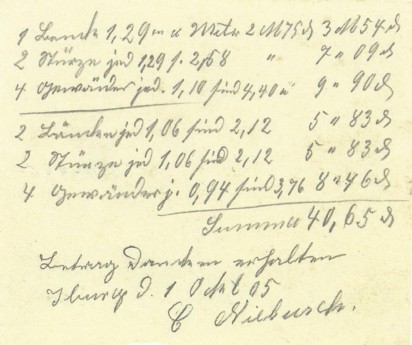 1 Bank 1,29 m a Metr 2 M 75 ₰ 3 M 54 ₰
2 Stürze jed 1,29 f. 2,58 " 7 " 09 ₰
4 Gewänder jed. 1,10 sind 4,40 m 9 " 90 ₰
2 Bänken jed 1,06 sind 2,12 5 " 83 ₰
2 Stürze jed 1,06 sind 2,12 5 " 83 ₰
4 Gewänder j. 0,94 sind 3,76 8 " 46 ₰
Summa 40,65 ₰
Betrag dankend erhalten
Iburg d. 1 Okt 05
C Niebusch.